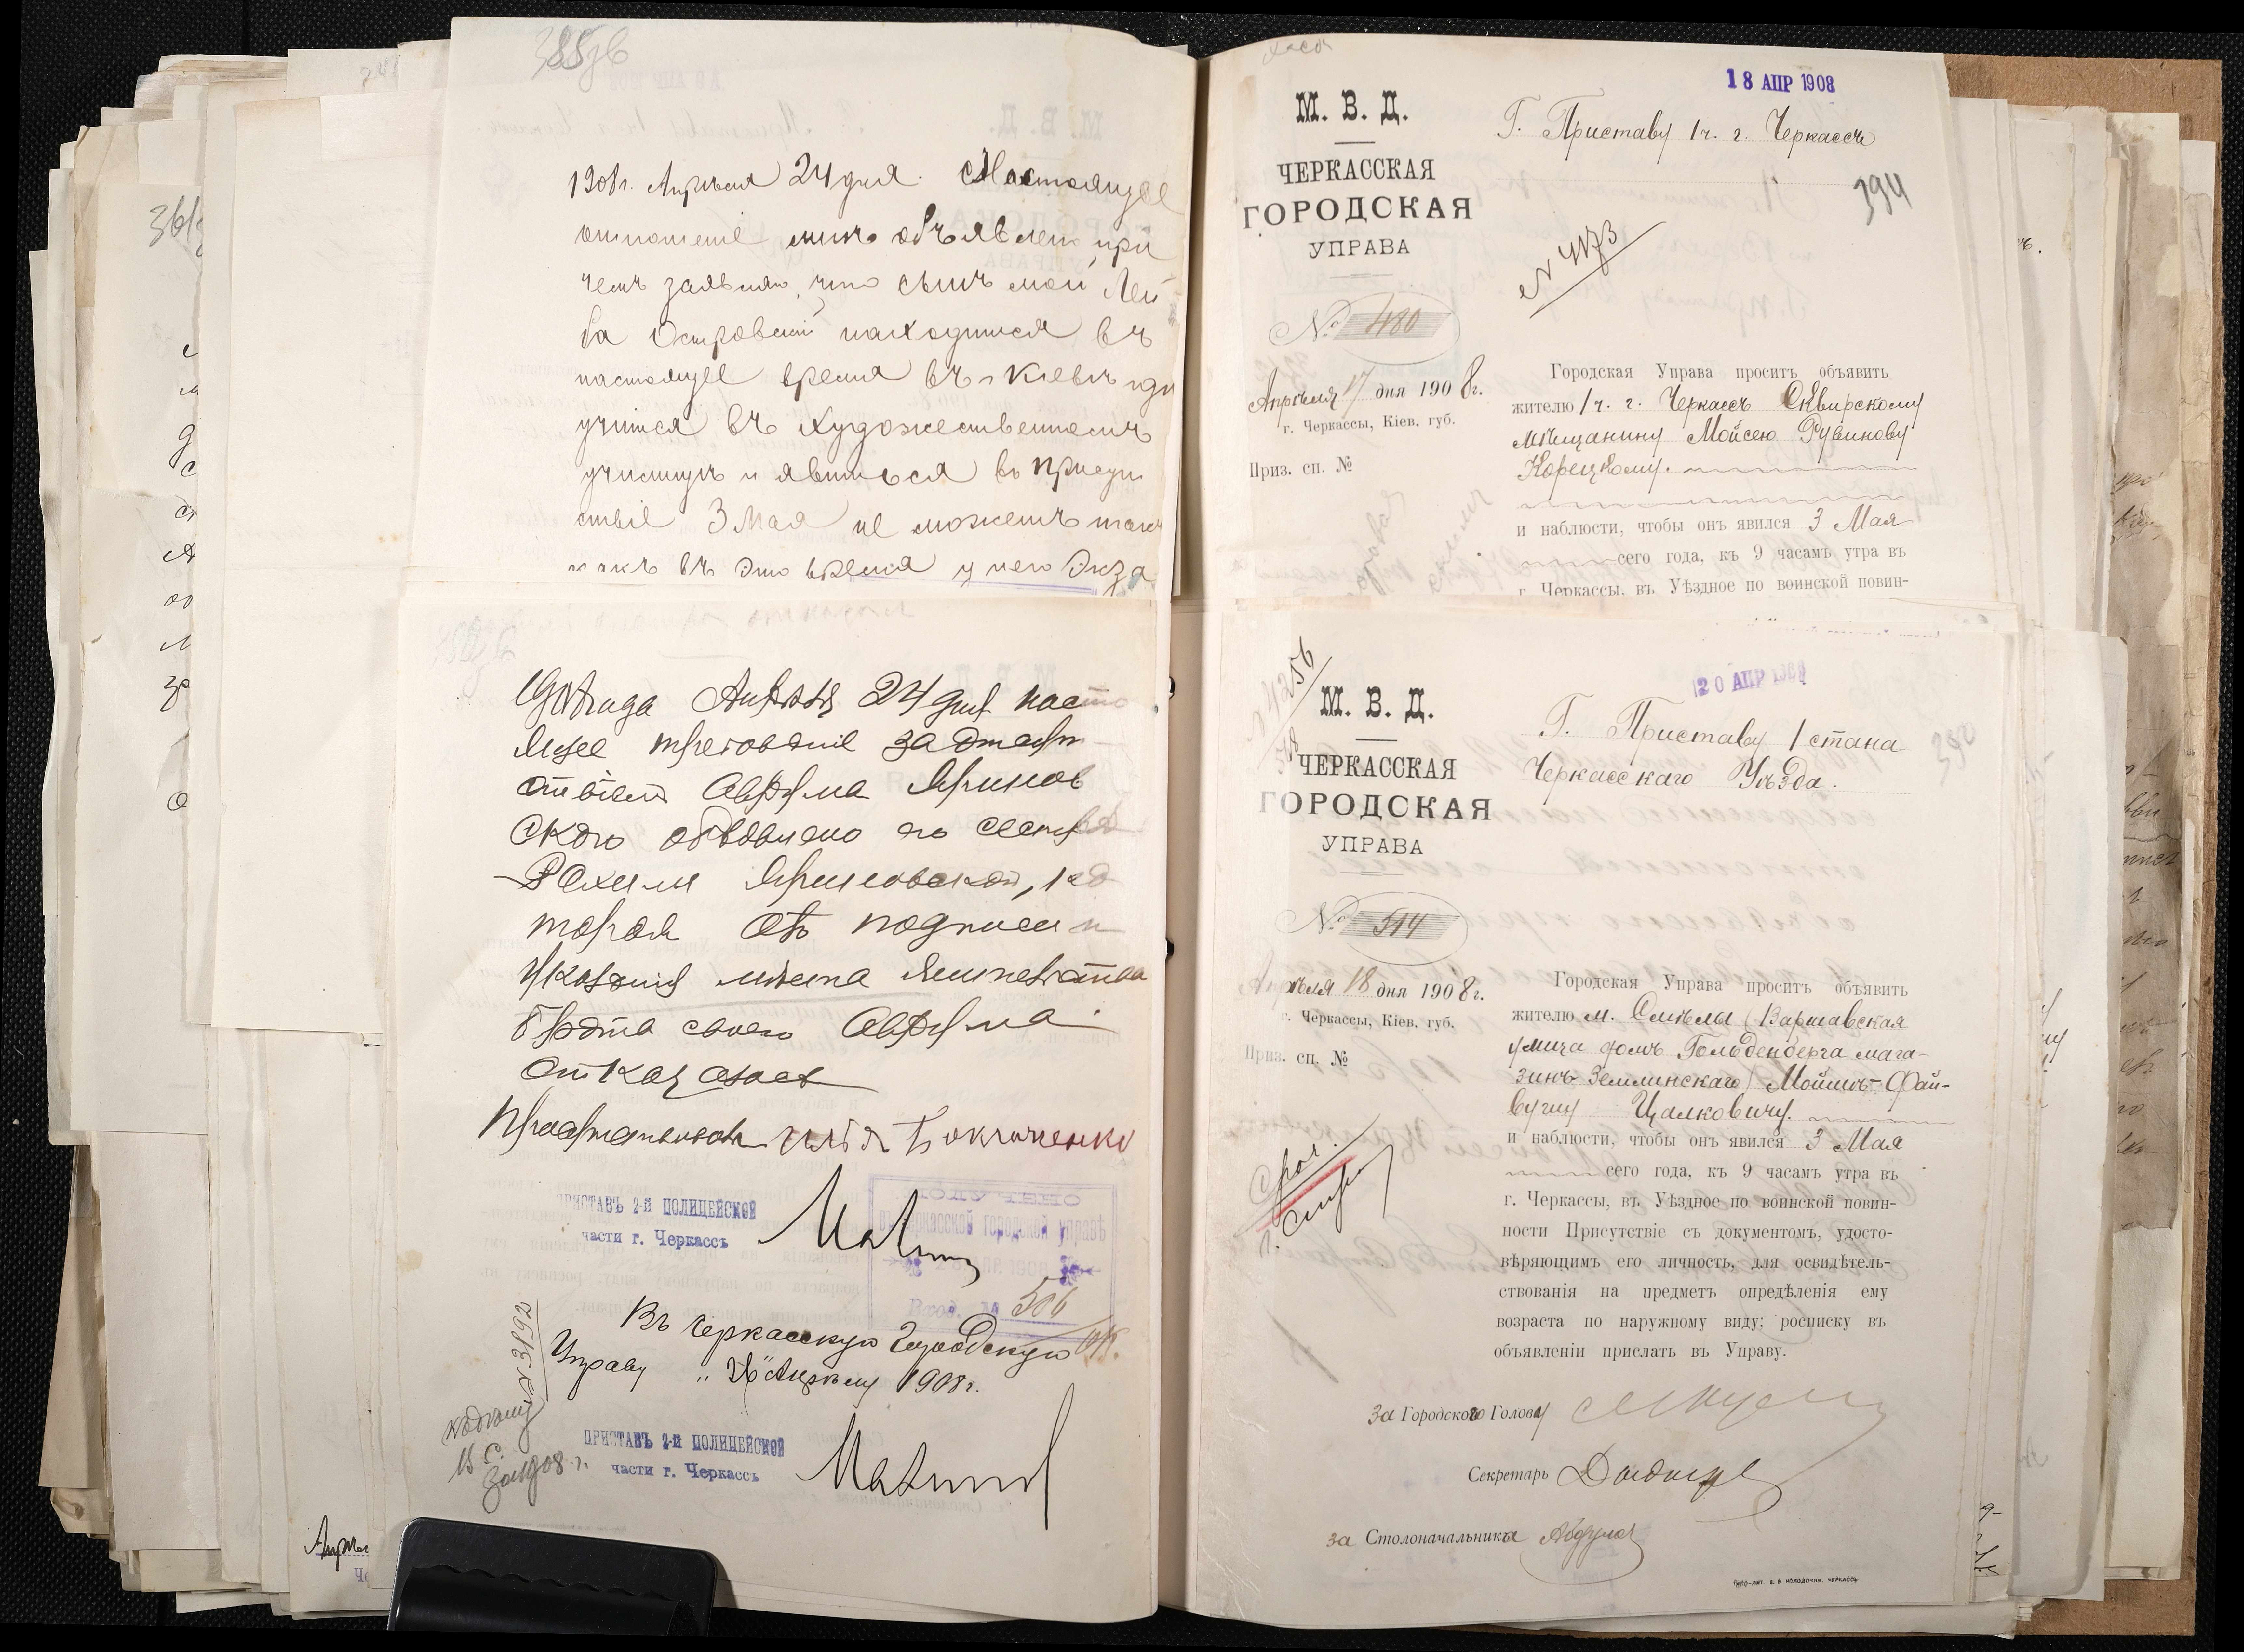 1908г. Апрѣля 24 дня. Настоящее
отношеніе мнѣ объявлено, при
чемъ заявляю, что сынъ мой Лей
ба Островскій находится въ
настоящее время въ г Кіевѣ гдѣ
учится въ Художественномъ
училищѣ и явиться въ присут
ствіе 3 Мая не можетъ такъ
какъ въ это время у него Экза
Апрѣля 24 дня насто
ящее требованіе за
Аврума Яринов
ского объявлено его сестрѣ
Рохили Яриновской, ко
торая отъ подписи и
указанія мѣста жительства
брата своего Аврума
отказалась
ПРИСТАВЪ 2-й ПОЛИЦЕЙСКОЙ
части г. Черкассъ
Вход. № 506
Въ Черкасскую Городскую
Управу Апрѣля 1908 г.
№ 3892
ПРИСТАВЪ 2-й ПОЛИЦЕЙСКОЙ
части г. Черкассъ
18 АПР 1908
М. В. Д.
ЧЕРКАССКАЯ
ГОРОДСКАЯ
УПРАВА
№ 480
Апрѣля 17 дня 1908 г.
г. Черкассы, Кіев. губ.
Приз. сп. №
Г. Приставу 1 ч. г. Черкассъ
394
№ 4173
Городская Управа проситъ объявить
жителю 1 ч. г. Черкассъ Сквирскому
мѣщанину Мойсею Рувинову
Корецкому.
и наблюсти, чтобы онъ явился 3 Мая
сего года, къ 9 часамъ утра въ
г. Черкассы, въ Уѣздное по воинской повин-
20 АПР 1908
№ 4256
М. В. Д.
ЧЕРКАССКАЯ
ГОРОДСКАЯ
УПРАВА
№ 514
Апрѣля 18 дня 1908 г.
г. Черкассы, Кіев. губ.
Приз. сп. №
Г. Приставу 1 стана
Черкасскаго Уѣзда.
Городская Управа проситъ объявить
жителю м. Смѣлы (Варшавская
улица домъ Гольденберга мага-
зинъ Землинскаго) Мойшѣ-Фай-
вушу Цалковичу.
и наблюсти, чтобы онъ явился 3 Мая
сего года, къ 9 часамъ утра въ
г. Черкассы, въ Уѣздное по воинской повин-
ности Присутствіе съ документомъ, удосто-
вѣряющимъ его личность, для освидѣтель-
ствованія на предметъ опредѣленія ему
возраста по наружному виду; росписку въ
объявленіи прислать въ Управу.
За Городского Голову
Секретарь
За Столоначальника